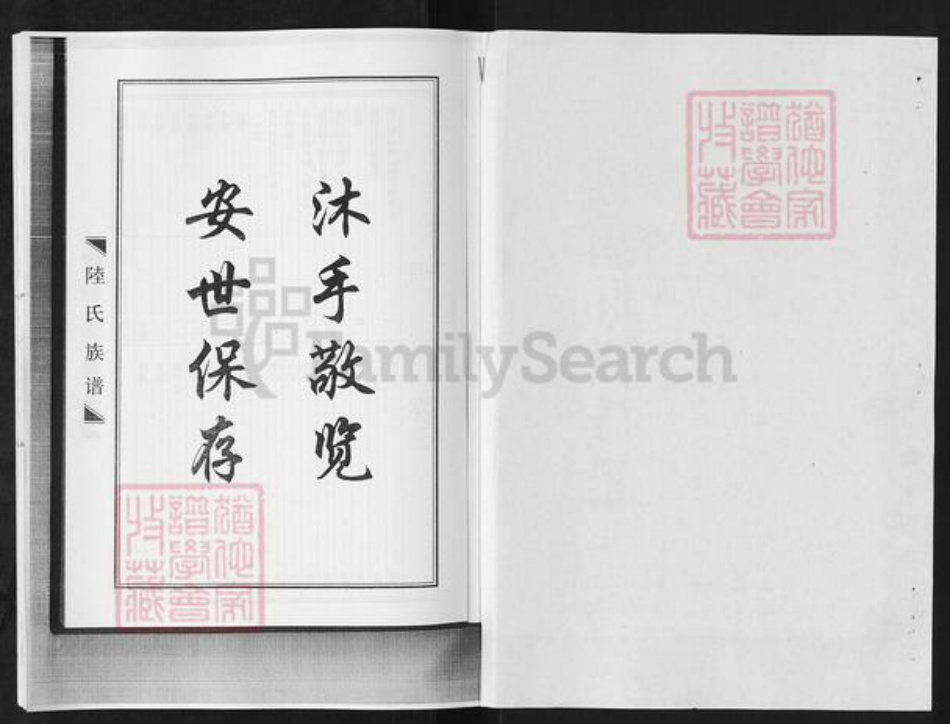 沐手敬览
安世保存
陸氏族谱
FamilySearch
猶他家
譜學會
收藏
猶他家
譜學會
收藏